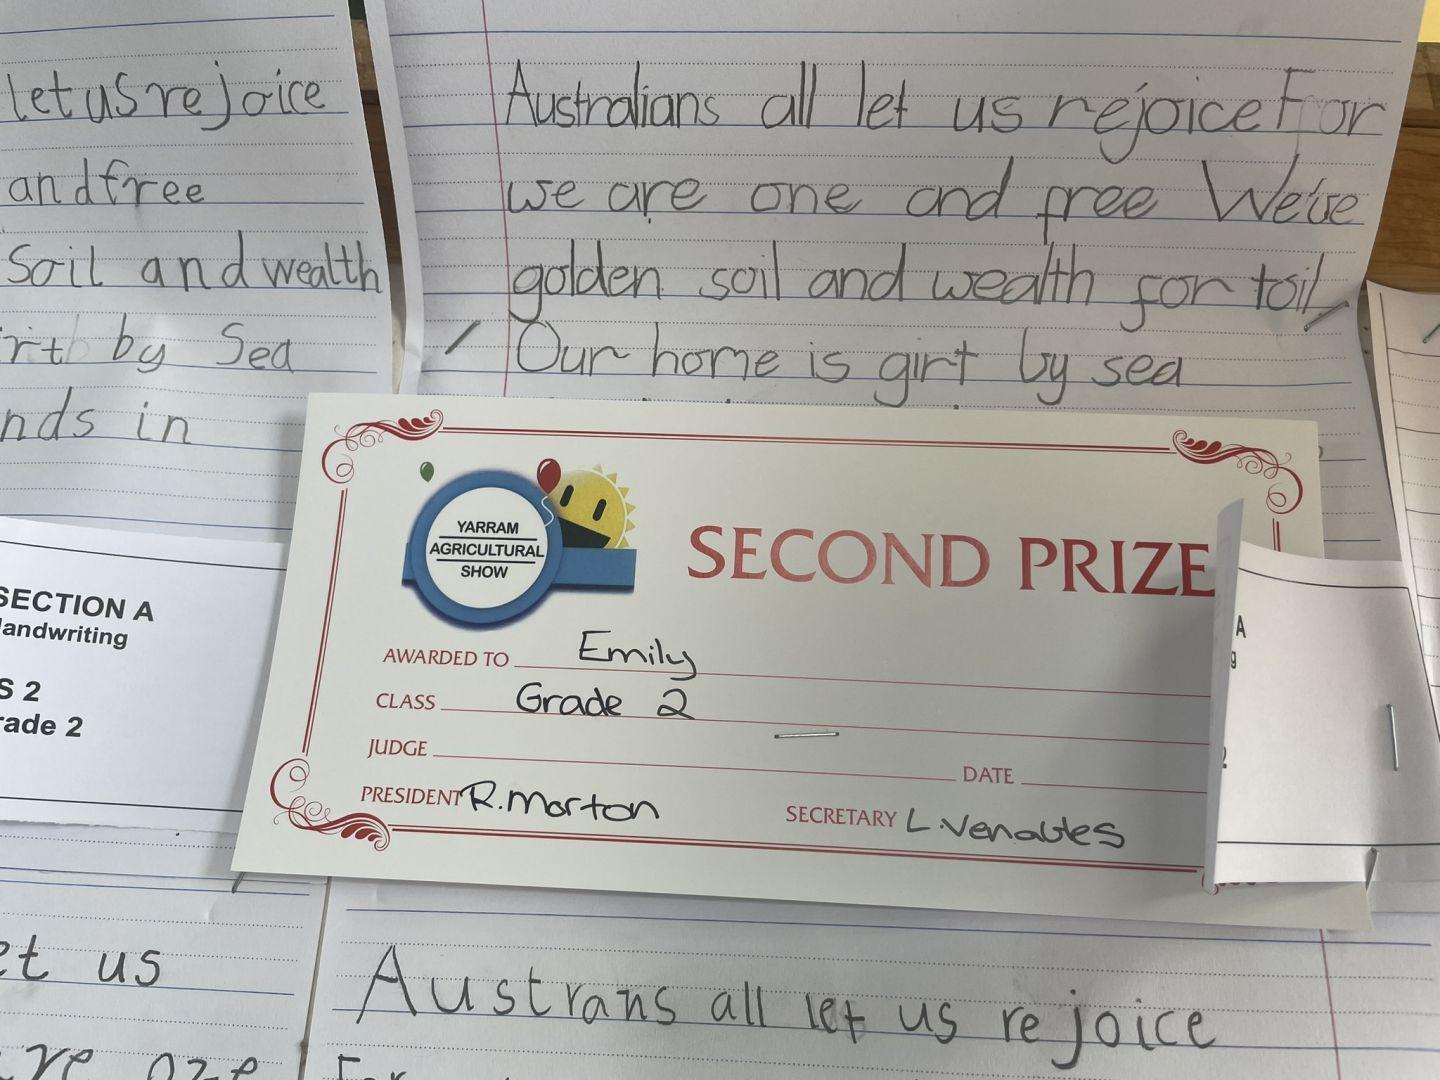 let us rejoice
and free
Soil and wealth
by Sea
in
Australians all let us rejoice For
we are one and free We've
golden soil and wealth for toil
Our home is girt by sea
SECTION A
Handwriting
S 2
Grade 2
YARRAM
AGRICULTURAL
SHOW
SECOND PRIZE
AWARDED TO Emily
CLASS Grade 2
JUDGE
DATE
PRESIDENT R. Morton
SECRETARY L. Venables
A
us
Austrans all let us rejoice